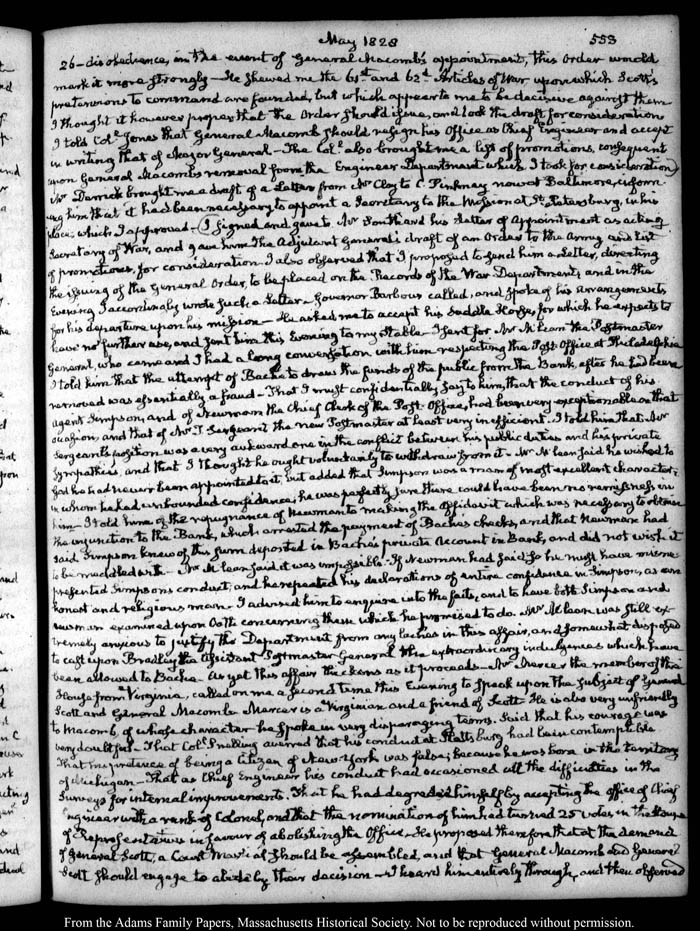 May 1828
553
26 - disobedience, in the event of General Macomb's appointment, this order would
mark it more strongly - He shewed me the 61st and 62d Articles of War upon which Scott's
pretensions to command are founded, but which appear to me to be decisive against them
I thought it however proper that the Order should issue, and took the draft for consideration
I told Col. Jones that General Macomb should resign his Office as Chief Engineer and accept
in writing that of Major General - The Col. also brought me a list of promotions, consequent
upon General Macomb's removal from the Engineer Department which I took for consideration
Mr Derrick brought me a draft of a Letter from Mr Clay to C. Pinkney now at Baltimore, inform-
ing him that it had been necessary to appoint a Secretary to the Mission at St. Petersburg, in his
place, which I approved - I signed and gave to Mr Southard his Letter of Appointment as acting
Secretary of War, and gave him the Adjutant General's draft of an Order to the Army and list
of promotions, for consideration. I also observed that I proposed to send him a Letter, directing
the issuing of the General Order, to be placed on the Records of the War Department, and in the
Evening I accordingly wrote such a Letter - Governor Barbour called, and spoke of his arrangements
for his departure upon his mission - He asked me to accept his Saddle Horse, for which he expects to
have no further use, and sent him this Evening to my Stable - I sent for Mr McLean the Postmaster
General, who came and I had a long conversation with him respecting the Post Office at Philadelphia
I told him that the attempt of Bache to draw the funds of the public from the Bank, after he had been
removed was essentially a fraud - That I must confidentially say to him, that the conduct of his
agent Simpson, and of Newman the Chief Clerk of the Post Office, had been very exceptionable on that
occasion, and that of Mr T. Sergeant the new Postmaster at least very inefficient. I told him that Mr
Sergeant's position was a very awkward one in the conflict between his public duties and his private
sympathies, and that I thought he ought voluntarily to withdraw from it - Mr McLean said he wished to
God he had never been appointed to it, but added that Simpson was a man of most excellent character;
in whom he had unbounded confidence; he was perfectly sure there could have been no remissness in
him - I told him of the repugnance of Newman to making the affidavit which was necessary to obtain
the injunction to the Bank, which arrested the payment of Bache's checks, and that Newman had
said Simpson knew of this sum deposited in Bache's private Account in Bank, and did not wish it
to be meddled with - Mr McLean said it was impossible - If Newman had said so he must have misre-
presented Simpson's conduct, and he repeated his declarations of entire confidence in Simpson, as an
honest and religious man - I advised him to enquire into the facts, and to have both Simpson and
Newman examined upon Oath concerning them which he promised to do. Mr McLean was still ex-
tremely anxious to justify the Department from any laches in this affair, and somewhat disposed
to cast upon Bradley the Assistant Postmaster General the extraordinary indulgences which have
been allowed to Bache - As yet this affair thickens as it proceeds - Mr Mercer the member of the
House from Virginia, called on me a second time this Evening to speak upon the subject of General
Scott and General Macomb - Mercer is a Virginian and a friend of Scott - He is also very unfriendly
to Macomb, of whose character he spoke in very disparaging terms. Said that his courage was
very doubtful - That Col. Snelling averred that his conduct at Plattsburg had been contemptible
That his pretence of being a citizen of New-York was false; because he was born in the territory
of Michigan - That as Chief Engineer his conduct had occasioned all the difficulties in the
Surveys for internal improvements. That he had degraded himself by accepting the office of Chief
Engineer with a rank of Colonel, and that the nomination of him had turned 25 votes in the House
of Representatives in favour of abolishing the Office - He proposed therefore that at the demand
of General Scott, a Court Martial should be assembled, and that General Macomb and General
Scott should engage to abide by their decision - I heard him entirely through, and then observed
From the Adams Family Papers, Massachusetts Historical Society. Not to be reproduced without permission.